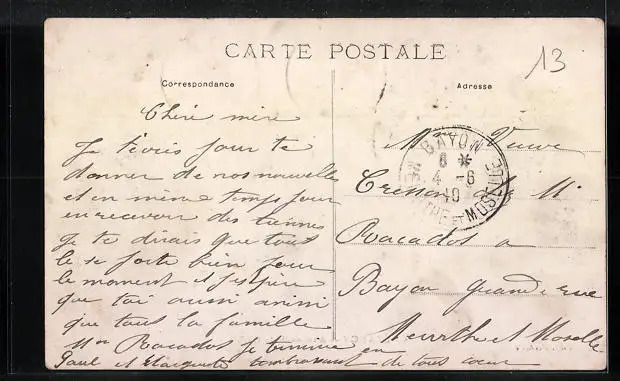 CARTE POSTALE
13
Correspondance
Chère mère
Je t'écris pour te
donner de nos nouvelles
et en même temps pour
en recevoir des tiennes
Je te dirais que tout
le se porte bien pour
le moment et j'espère
que toi aussi ainsi
que tout la famille
Mme Racadot je termine en
Paul et Marguerite t'embrassant de tout coeur
Adresse
Mme Veuve
Cresson M
Racadot a
Bayon grande rue
Meurthe et Moselle
BAYON
6 *
4 - 6
10
MEURTHE ET MOSELLE